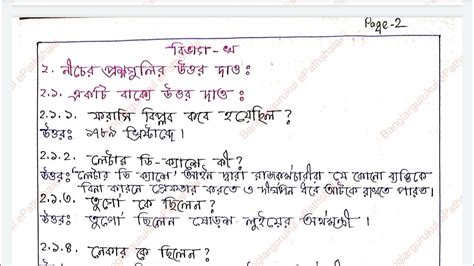 Page-2
বিভাগ - খ
২. নীচের প্রশ্নগুলির উত্তর দাও:
২.১. একটি বাক্যে উত্তর দাও:
২.১.১. ফরাসি বিপ্লব কবে হয়েছিল?
উত্তর: ১৭৮৯ খ্রিস্টাব্দে।
২.১.২. লেটার ডি-ক্যাশে কী?
উত্তর: লেটার ডি-ক্যাশে আইন দ্বারা রাজকর্মচারীরা যে কোনো ব্যক্তিকে
বিনা কারনে গ্রেফতার করতে ও দীর্ঘদিন ধরে আটকে রাখতে পারত।
২.১.৩. তুর্গো কে ছিলেন?
উত্তর: তুর্গো ছিলেন ষোড়শ লুইয়ের অর্থমন্ত্রী।
২.১.৪. নেকার কে ছিলেন?
Banglargurukul ePathshala